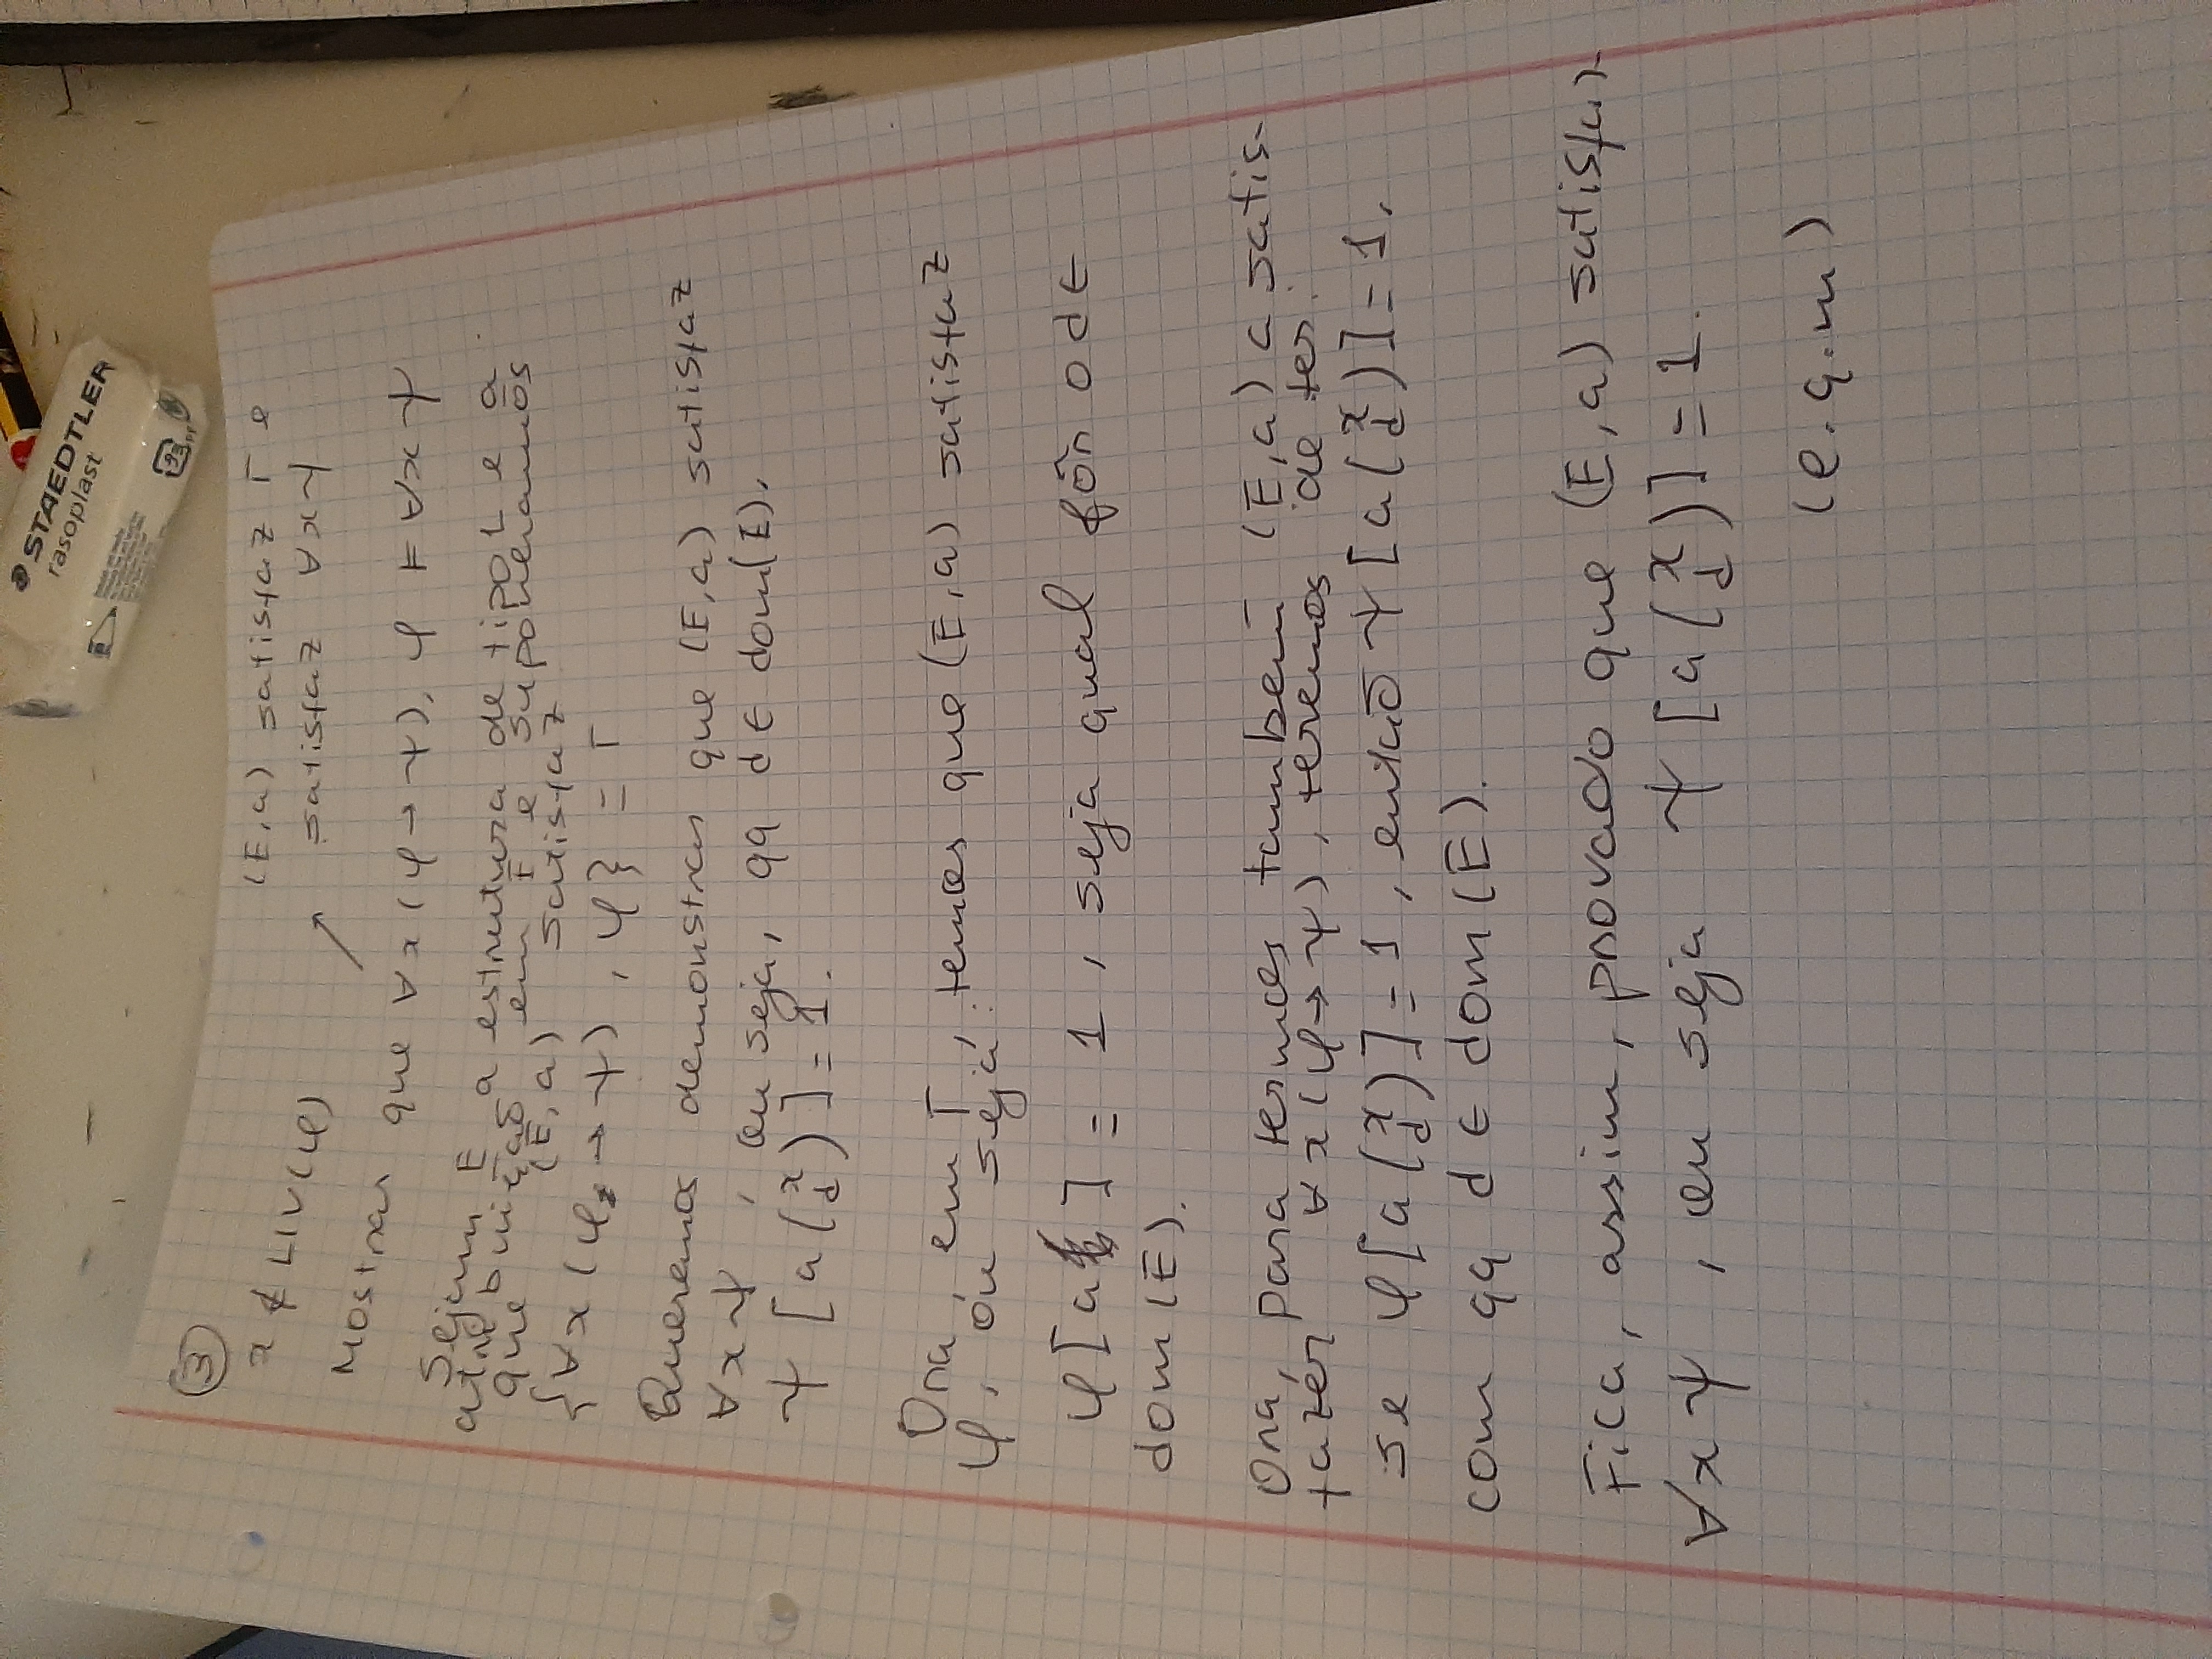 STAEDTLER
rasoplast
③
x ∉ LIV(φ)
(E,a) satisfaz Γ e
satisfaz ∀xψ
Mostrar que ∀x(φ→ψ), φ ⊨ ∀xψ
Sejam E a estrutura de tipo L e a
atribuição em E e suponhamos
que (E,a) satisfaz
{∀x(φ→ψ), φ} = Γ
Queremos demonstrar que (E,a) satisfaz
∀xψ, ou seja, qq d ∈ dom(E).
ψ[a(x d)] = 1.
Ora, em Γ, temos que (E,a) satisfaz
φ, ou seja:
φ[a] = 1, seja qual fôr o d ∈
dom(E).
Ora, para termos também (E,a) a satis-
fazer ∀x(φ→ψ), teremos de ter:
se φ[a(x d)] = 1, então ψ[a(x d)] = 1,
com qq d ∈ dom(E).
Fica, assim, provado que (E,a) satisfaz
∀xψ, ou seja ψ[a(x d)] = 1.
(e.q.m)